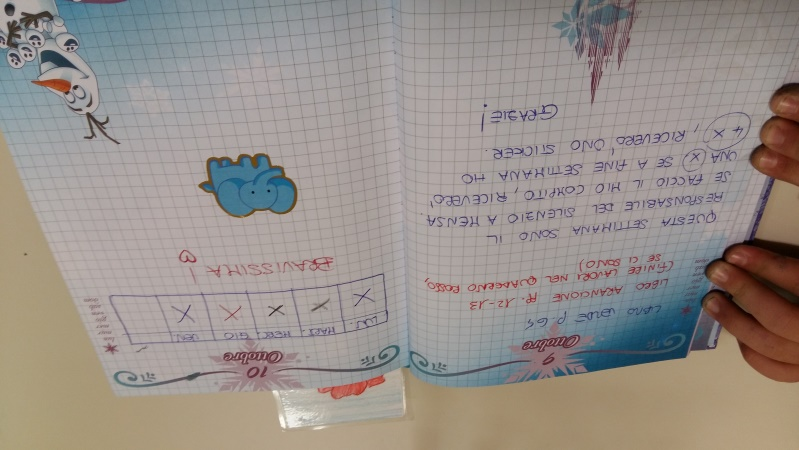 9
Ottobre
LIBRO VERDE P. 64
LIBRO ARANCIONE P. 12-13
(FINIRE LAVORI NEL QUADERNO ROSSO,
SE CI SONO)
QUESTA SETTIMANA SONO IL
RESPONSABILE DEL SILENZIO A MENSA.
SE FACCIO IL MIO COMPITO, RICEVERO'
UNA X SE A FINE SETTIMANA HO
4 X, RICEVERO' UNO STICKER.
GRAZIE!
10
Ottobre
LUN. MART. MER. GIO VEN.
X X X X X
BRAVISSIMA!